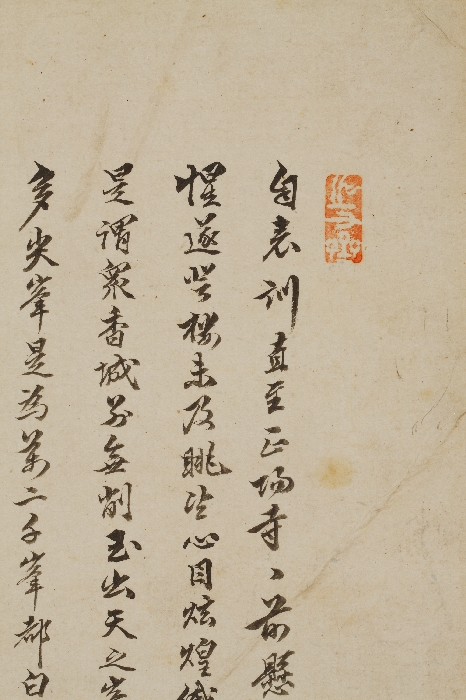 自表訓直至正陽寺〻前懸
遂登樓未及眺 心目炫煌
是謂衆香城 無削玉出天之
多尖峯是為萬二千峯都白